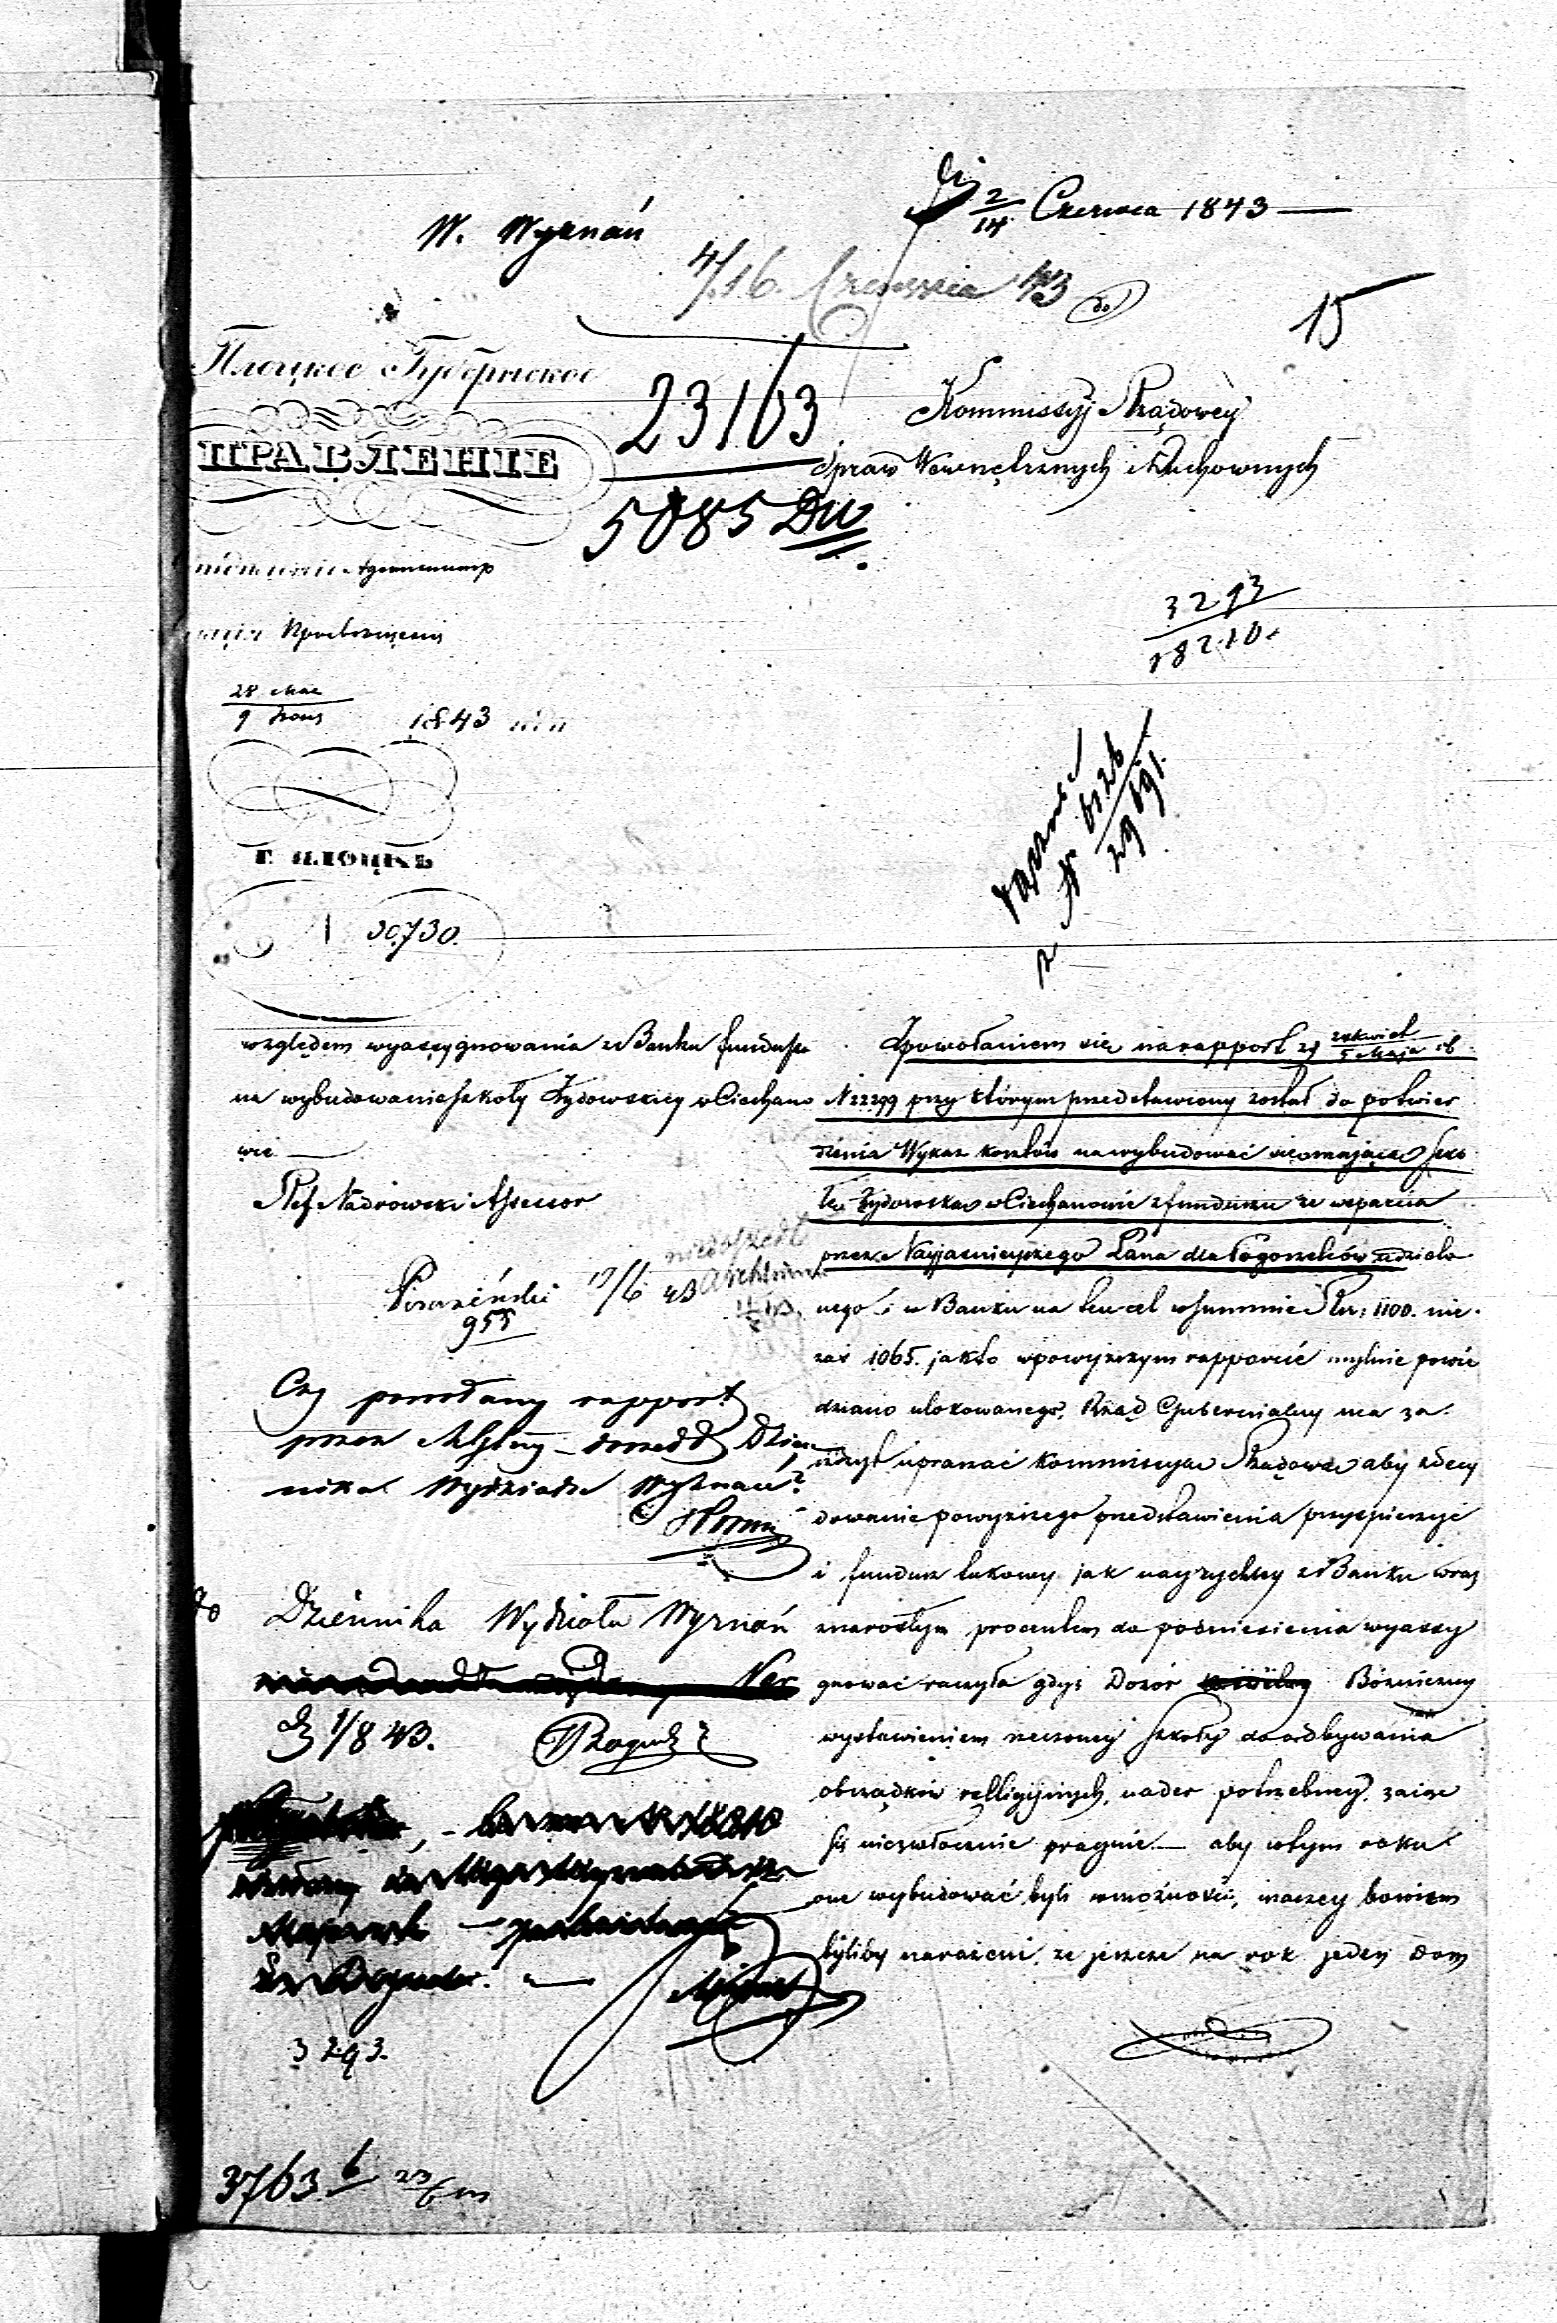 2/14 Czerwca 1843
W. Wyznań
4/16. Czerwca 43
15
Плоцкое Губернское
ПРАВЛЕНІЕ
23163
5085 DW
Kommissyi Rządowey
Spraw Wewnętrznych i Duchownych
3293
18210.
28 Мая
9 Іюня 1843
Łączone
z N 6126
29691.
Г. ПЛОЦКЪ
30,730.
względem wyassygnowania z Banku funduszu
na wybudowanie szkoły Żydowskiey w Ciechano
wie
Ref. Nadrowski Assessor
niedoszedł
19/6 43
955
Czy powołany rapport
przez Mylny doszedł Dzien
nika Wydziału Wyznań?
Dziennika Wydziału Wyznań
1/8 43.
3293.
3763
Z powołaniem się na rapport z 23 Kwiet / 5 Maja rb
N 22299 przy którym przedstawiony został do potwier
dzenia Wykaz kosztów na wybudować się mającą Szko
łę Żydowską w Ciechanowie z funduszu ze wsparcia
przez Nayjaśnieyszego Pana dla Pogorzelców udzielo
nego i w Banku na ten cel w summie Rsr: 1100. nie
zaś 1065. jak to w powyższym rapporcie mylnie powie
dziano ulokowanego, Rząd Gubernialny ma za
szczyt upraszać Kommissyą Rządową aby zdecy
dowanie powyższego przedstawienia przyspieszyć
i fundusz takowy jak nayrychley z Banku wraz
z narosłym procentem do podniesienia wyassy
gnować raczyła gdyż Dozór Bóżniczny
wystawieniem rzeczoney szkoły do odbywania
obrządków relligijnych, nader potrzebney, zaiąć
się niezwłocznie pragnie — aby w tym roku
one wybudować byli w możności, inaczey bowiem
byliby narażeni że jeszcze na rok jeden dom